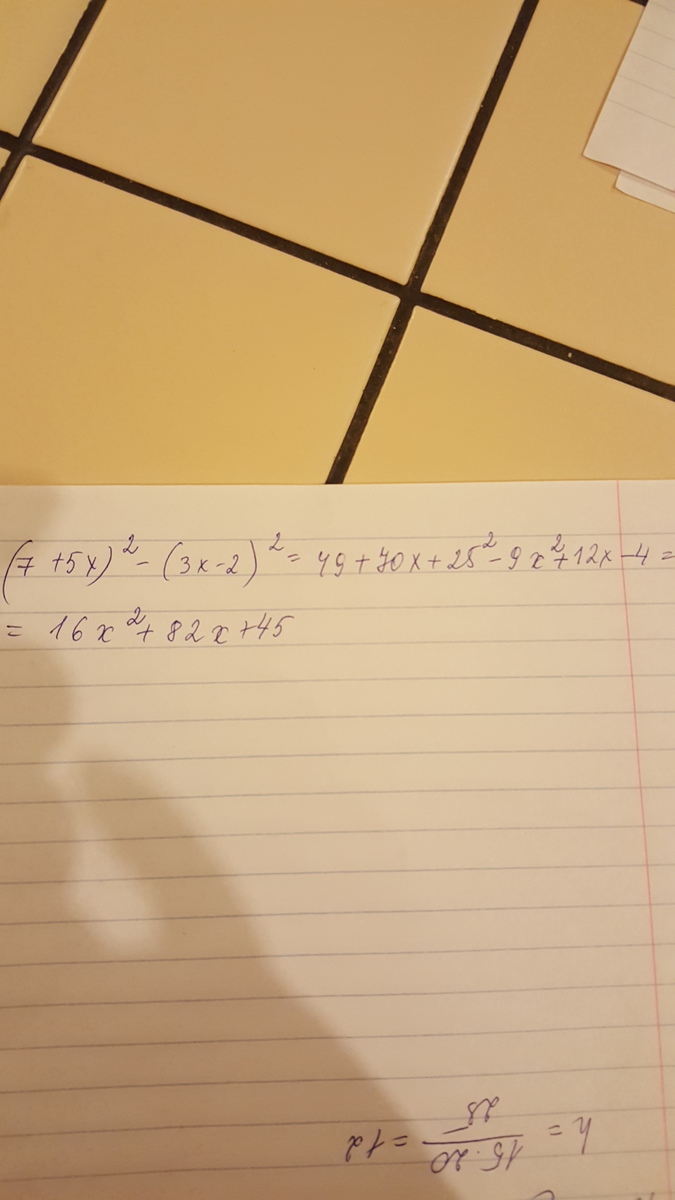 (7 + 5x)² - (3x - 2)² = 49 + 70x + 25² - 9x² + 12x - 4 =
= 16x² + 82x + 45
h = 15·20 / 25 = 12